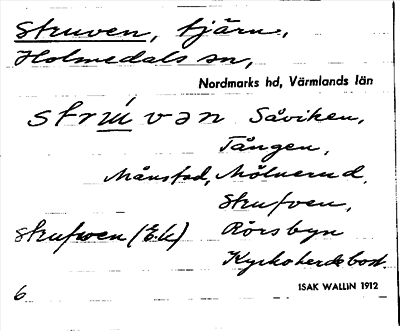 Struven, tjärn,
Holmedals sn,
Nordmarks hd, Värmlands län
strúvən Såviken,
Tången,
Månstad, Mölnerud,
Strufven,
Strufwen (E.k) Rörsbyn
Kyrkoherdebost.
6 ISAK WALLIN 1912